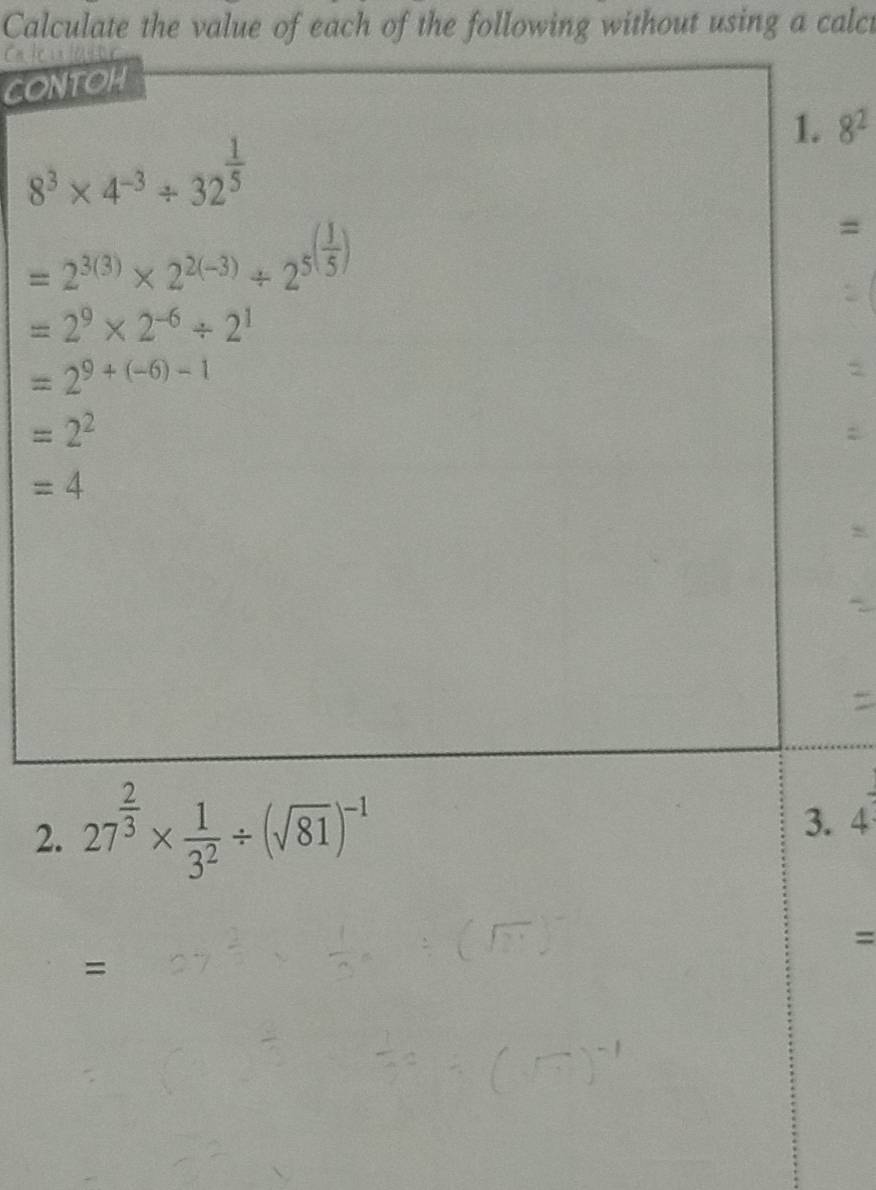 Calculate the value of each of the following without using a
CONTOH
8³ × 4⁻³ ÷ 32^(1/5)
= 2^(3(3)) × 2^(2(−3)) ÷ 2^(5(1/5))
= 2⁹ × 2⁻⁶ ÷ 2¹
= 2^(9 + (−6) − 1)
= 2²
= 4
1. 8²
=
=
=
=
=
=
=
2. 27^(2/3) × 1/3² ÷ (√81)⁻¹
=
3. 4
=